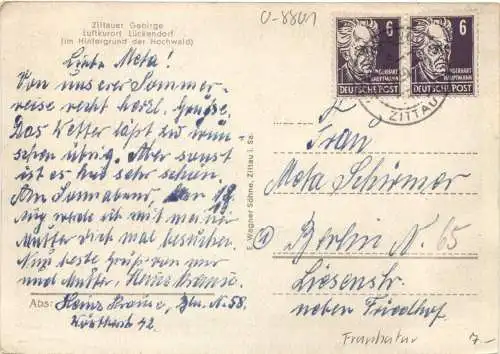 Zittauer Gebirge
Luftkurort Lückendorf
(im Hintergrund der Hochwald)
Liebe Meta!
Von unserer Sommer-
reise recht herzl. Grüße.
Das Wetter läßt zu wün-
schen übrig. Aber sonst
ist es hier sehr schön.
Am Sonnabend, den 19.
Aug. werde ich mit meiner
Mutter dich mal besuchen.
Nun beste Grüße von mir
und Mutter, Heinz Krause.
Abs: Heinz Krause, Bln. N. 58.
42.
E. Wagner Söhne, Zittau i. Sa.
O-8801
6
GERHART
HAUPTMANN
DEUTSCHE POST
6
GERHART
HAUPTMANN
DEUTSCHE POST
ZITTAU
Frau
Meta Schirmer
Berlin N. 65
Liesenstr.
neben Friedhof
7.-